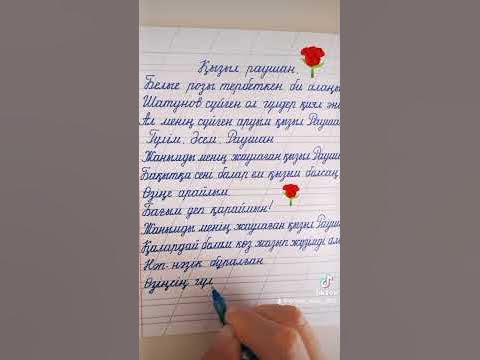 Қызыл раушан.
Белые розы тербеткен би алаңы
Шатунов сүйген ол гүлдер қиял
Ал менің сүйген аруым қызыл Рауша
Гүлім, Әсем, Раушан
Жанымды менің жаулаған қызыл Рауш
Бақытқа сені балар ем қызым болсаң
Өзіңе арайлым
Бағым деп қараймын!
Жанымды менің жаулаған қызыл Рауш
Қалардай болам көз жазып жүзімді
Нәп-нәзік бұралған
Өзіңсің гүл
TikTok